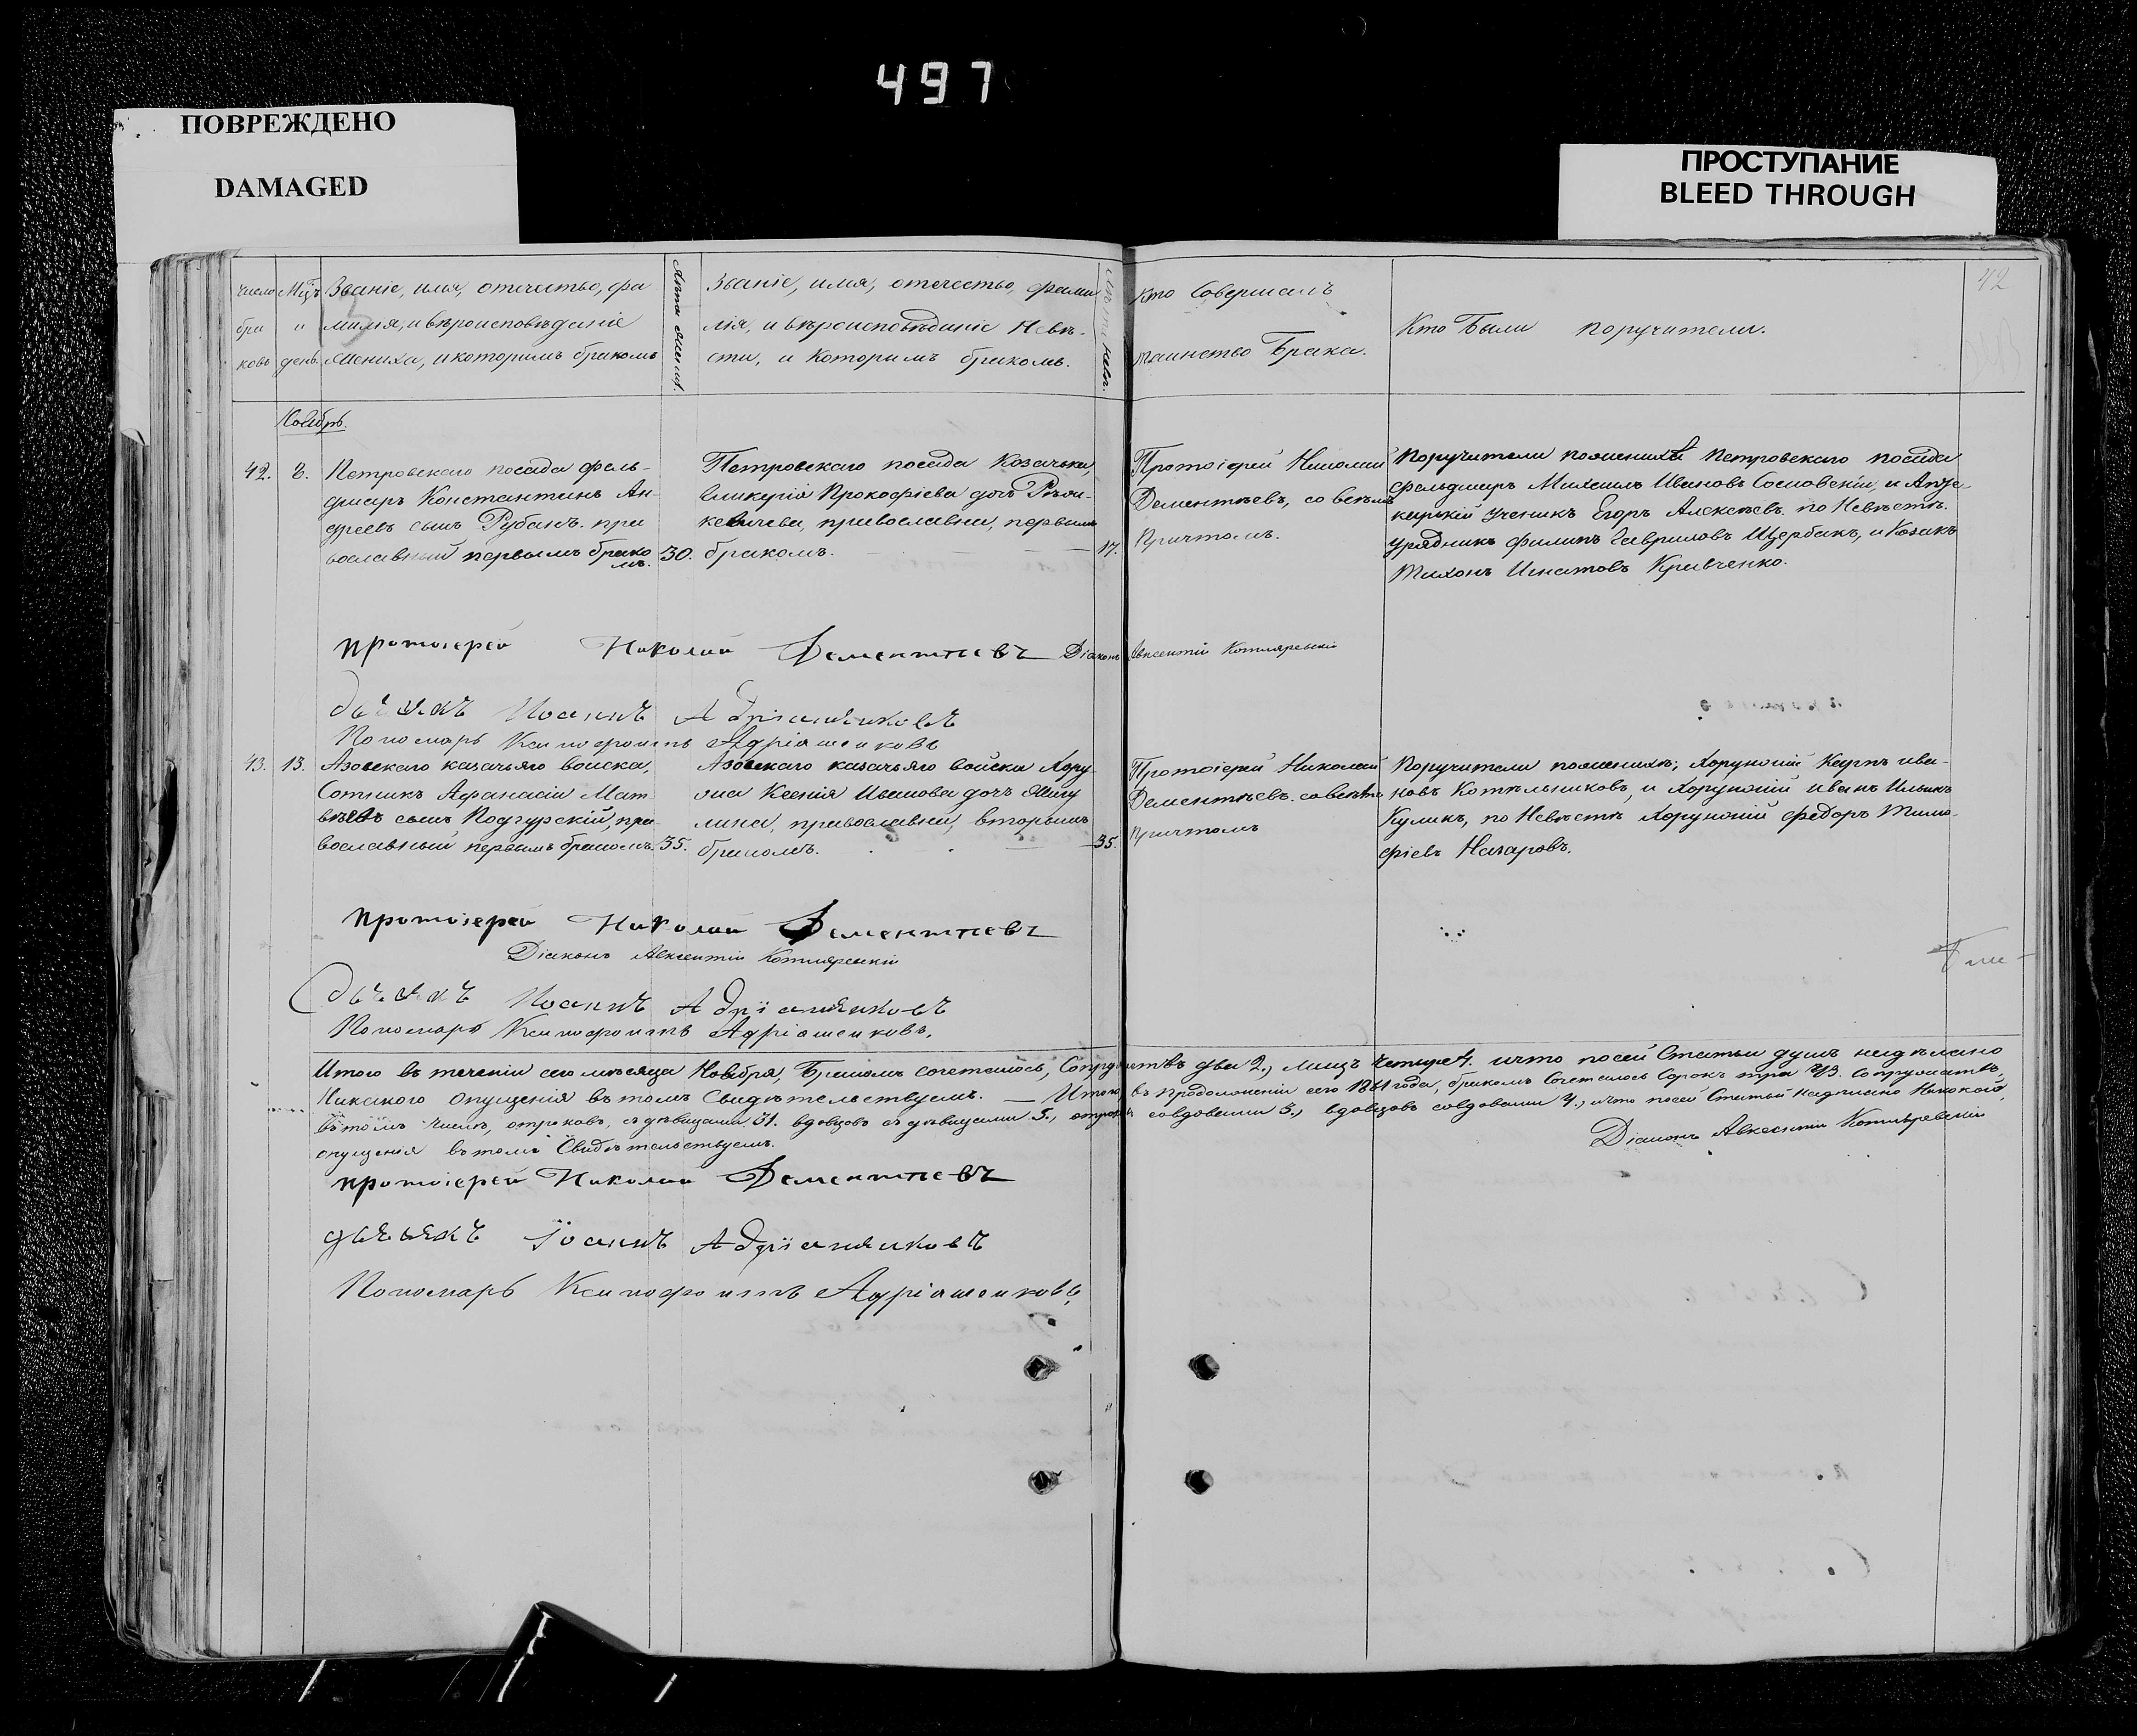 497
ПОВРЕЖДЕНО
DAMAGED
ПРОСТУПАНИЕ
BLEED THROUGH
42
Число браковъ
Мцъ и день.
Званіе, имя, отечество, фа
милія, и вѣроисповѣданіе
жениха, и которимъ бракомъ
Лѣта жених.
Званіе, имя, отечество, фами
лія, и вѣроисповѣданіе Невѣ-
сти, и Которимъ бракомъ.
невѣ.
Кто Совершалъ
таинство Брака.
Кто Были поручители.
Ноябрь.
42. 8.
Петровскаго посада фель-
дшеръ Константинъ Ан-
дреевъ сынъ Рубанъ. пра
вославный первымъ брако
мъ. 30.
Петровскаго посада Козачька,
Гликерія Прокофіева дочь
православна, первымъ
бракомъ. 17.
Протоіерей Николай
Дементѣевъ, со всѣмъ
Причтомъ.
Поручители по женихѣ Петровскаго посада
фельдшеръ Михаилъ Ивановъ Сосновскій, и Апте-
карскій ученикъ Егоръ Алексѣевъ. по Невѣстѣ.
Урядникъ Филипъ Гавриловъ Щербакъ, и Козакъ
Тихонъ Игнатовъ Кривченко.
протоіерей Николай Дементѣевъ Діаконъ Авксентій Котляревскій
дьячокъ Иоаннъ Адріаненковъ
Пономарь Ксенофонтъ Адріаненковъ
43. 13.
Азовскаго казачьяго войска,
Сотникъ Афанасій Мат
вѣевъ сынъ Подгурскій, пра-
вославный первымъ бракомъ. 35.
Азовскаго казачьяго войска Хору
Ксенія Иванова дочь
православная, вторымъ
бракомъ. 35.
Протоіерей Николай
Дементѣевъ. со всѣмъ
Причтомъ
Поручители по женихѣ; Хорунжій Карпъ ива-
новъ Котѣльниковъ, и Хорунжій иванъ Ильинъ
Куликъ, по Невѣстѣ Хорунжій Федоръ Тимо-
фіевъ Назаровъ.
протоіерей Николай Дементѣевъ
Діаконъ Авксентій Котляревскій
дьячокъ Иоаннъ Адріаненковъ
Пономарь Ксенофонтъ Адріаненковъ.
Итого въ теченіи сего мѣсяца Ноября, Бракомъ сочеталось, Супружествъ два 2., лицъ четыре 4. и что по сей Статьи душъ недѣлано
Никакого опущенія въ томъ Свидѣтельствуемъ. — Итого въ продолженіи сего 1841 года, бракомъ Сочеталось Сорокъ три 43. Супружествъ,
въ томъ числѣ, отроковъ, съ дѣвицами, 31. вдовцовъ съ дѣвицами 5., отроки совдовами 3., вдовцовъ совдовами 4., и что по сей Статьи недѣлано Никакого
опущенія въ томъ Свидѣтельствуемъ.
Діаконъ Авксентій Котляревскій
протоіерей Николай Дементѣевъ
дьячокъ Іоаннъ Адріаненковъ
Пономарь Ксенофонтъ Адріаненковъ,